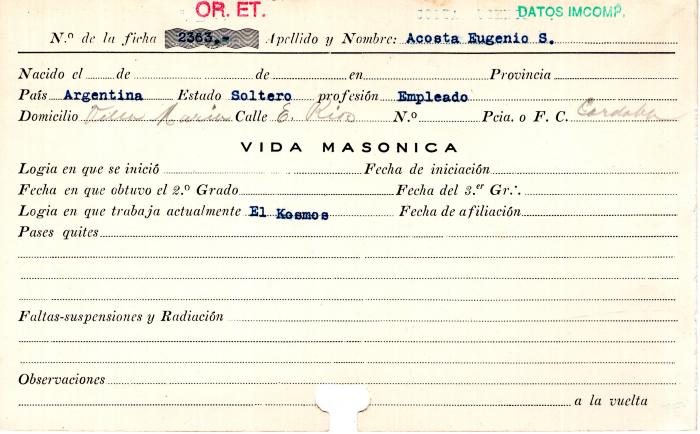 OR. ET. DATOS IMCOMP.
N.º de la ficha 2363.- Apellido y Nombre: Acosta Eugenio S.
Nacido el de de en Provincia
País Argentina Estado Soltero profesión Empleado
Domicilio Villa Maria Calle E. Rios N.º Pcia. o F. C. Cordoba
VIDA MASONICA
Logia en que se inició Fecha de iniciación
Fecha en que obtuvo el 2.º Grado Fecha del 3.er Gr∴
Logia en que trabaja actualmente El Kosmos Fecha de afiliación
Pases quites
Faltas-suspensiones y Radiación
Observaciones
a la vuelta